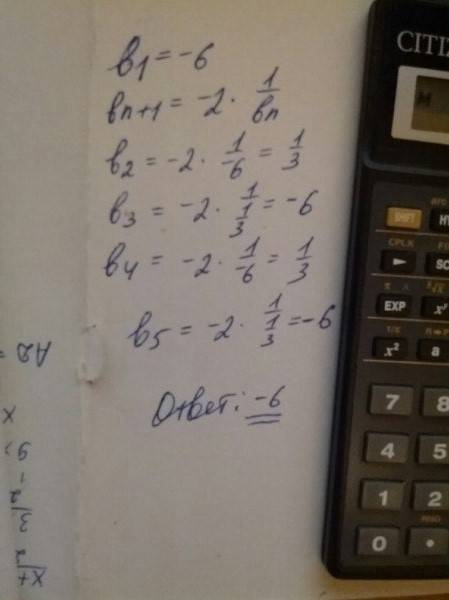 b₁ = -6
bn+1 = -2 · 1/bn
b₂ = -2 · 1/-6 = 1/3
b₃ = -2 · 1/(1/3) = -6
b₄ = -2 · 1/-6 = 1/3
b₅ = -2 · 1/(1/3) = -6
Ответ: -6
CITIZ
SHIFT
CPLX
EXP
1/x
x²
a
7 8
4 5
1 2
RND
0 ·
A2 =